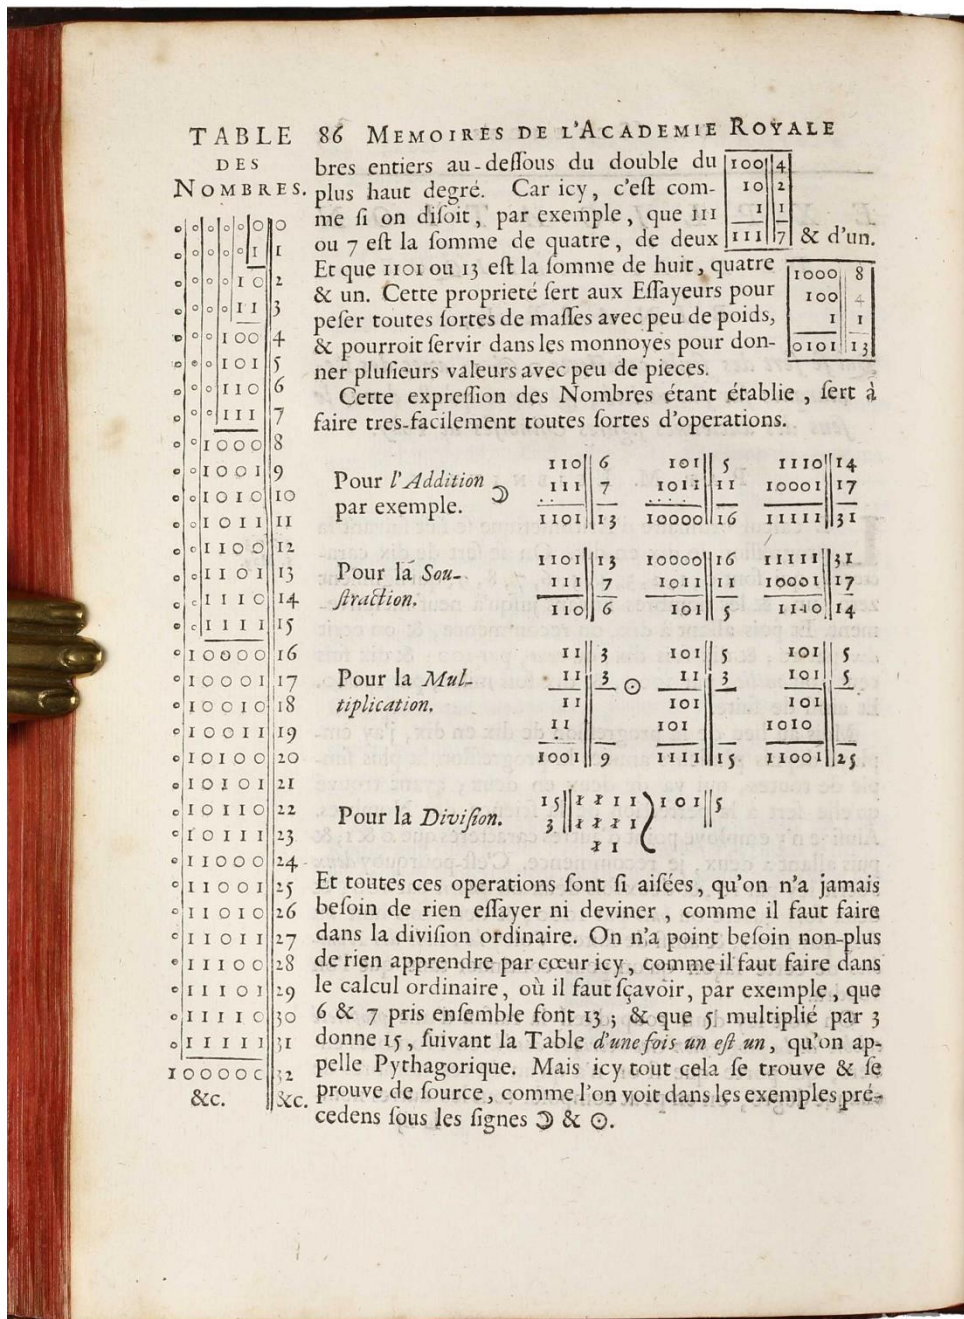 TABLE
DES
NOMBRES.
0 0 0 0 0 0 0
0 0 0 0 0 1 1
0 0 0 0 1 0 2
0 0 0 0 1 1 3
0 0 0 1 0 0 4
0 0 0 1 0 1 5
0 0 0 1 1 0 6
0 0 0 1 1 1 7
0 0 1 0 0 0 8
0 0 1 0 0 1 9
0 0 1 0 1 0 10
0 0 1 0 1 1 11
0 0 1 1 0 0 12
0 0 1 1 0 1 13
0 0 1 1 1 0 14
0 0 1 1 1 1 15
0 1 0 0 0 0 16
0 1 0 0 0 1 17
0 1 0 0 1 0 18
0 1 0 0 1 1 19
0 1 0 1 0 0 20
0 1 0 1 0 1 21
0 1 0 1 1 0 22
0 1 0 1 1 1 23
0 1 1 0 0 0 24
0 1 1 0 0 1 25
0 1 1 0 1 0 26
0 1 1 0 1 1 27
0 1 1 1 0 0 28
0 1 1 1 0 1 29
0 1 1 1 1 0 30
0 1 1 1 1 1 31
1 0 0 0 0 0 32
&c. &c.
86 MEMOIRES DE L'ACADEMIE ROYALE
bres entiers au-deſſous du double du
plus haut degré. Car icy, c'eſt com-
me ſi on diſoit, par exemple, que 111
ou 7 eſt la ſomme de quatre, de deux
100 4
10 2
1 1
111 7
& d'un.
Et que 1101 ou 13 eſt la ſomme de huit, quatre
& un. Cette proprieté ſert aux Eſſayeurs pour
peſer toutes ſortes de maſſes avec peu de poids,
& pourroit ſervir dans les monnoyes pour don-
ner pluſieurs valeurs avec peu de pieces.
1000 8
100 4
1 1
0101 13
Cette expreſſion des Nombres étant établie, ſert à
faire tres-facilement toutes ſortes d'operations.
Pour l'Addition
par exemple. ☽
110 6 101 5 1110 14
111 7 1011 11 10001 17
1101 13 10000 16 11111 31
Pour la Sou-
ſtraction.
1101 13 10000 16 11111 31
111 7 1011 11 10001 17
110 6 101 5 1110 14
Pour la Mul-
tiplication.
11 3 101 5 101 5
11 3 ⊙ 11 3 101 5
11 101 101
11 101 1010
1001 9 1111 15 11001 25
Pour la Diviſion.
15 1 1 1 1 101 5
3 1 1 1 1
1 1
Et toutes ces operations ſont ſi aiſées, qu'on n'a jamais
beſoin de rien eſſayer ni deviner, comme il faut faire
dans la diviſion ordinaire. On n'a point beſoin non-plus
de rien apprendre par cœur icy, comme il faut faire dans
le calcul ordinaire, où il faut ſçavoir, par exemple, que
6 & 7 pris enſemble font 13; & que 5 multiplié par 3
donne 15, ſuivant la Table d'une fois un eſt un, qu'on ap-
pelle Pythagorique. Mais icy tout cela ſe trouve & ſe
prouve de ſource, comme l'on voit dans les exemples pré-
cedens ſous les ſignes ☽ & ⊙.